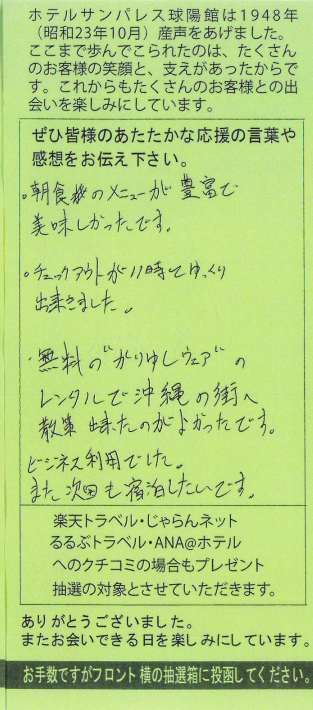 ホテルサンパレス球陽館は1948年
(昭和23年10月)産声をあげました。
ここまで歩んでこられたのは、たくさん
のお客様の笑顔と、支えがあったからで
す。これからもたくさんのお客様との出
会いを楽しみにしています。
ぜひ皆様のあたたかな応援の言葉や
感想をお伝え下さい。
。朝食のメニューが豊富で
美味しかったです。
。チェックアウトが11時でゆっくり
出来ました。
・無料の"かりゆしウェア"の
レンタルで沖縄の街へ
散策出来たのがよかったです。
ビジネス利用でした。
また次回も宿泊したいです。
楽天トラベル・じゃらんネット
るるぶトラベル・ANA@ホテル
へのクチコミの場合もプレゼント
抽選の対象とさせていただきます。
ありがとうございました。
またお会いできる日を楽しみにしています。
お手数ですがフロント横の抽選箱に投函してください。